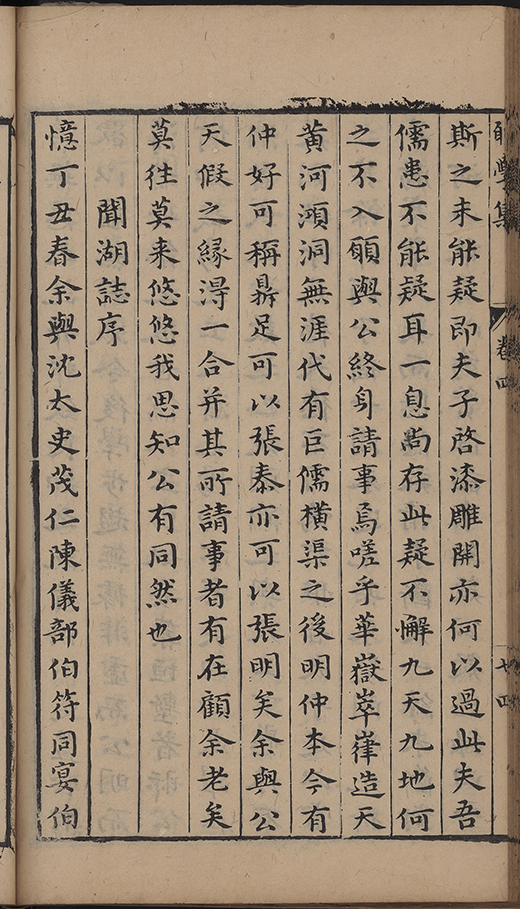 學集
卷四
七四
斯之未能疑即夫子啓漆雕開亦何以過此夫吾
儒患不能疑耳一息尚存此疑不解九天九地何
之不入願與公終身請事焉嗟乎華嶽崒嵂造天
黄河澒洞無涯代有巨儒橫渠之後明仲本今有
仲好可稱鼎足可以張泰亦可以張明矣余與公
天假之縁淂一合并其所請事者有在顧余老矣
莫往莫来悠悠我思知公有同然也
聞湖誌序
憶丁丑春余與沈太史茂仁陳儀部伯符同宴伯